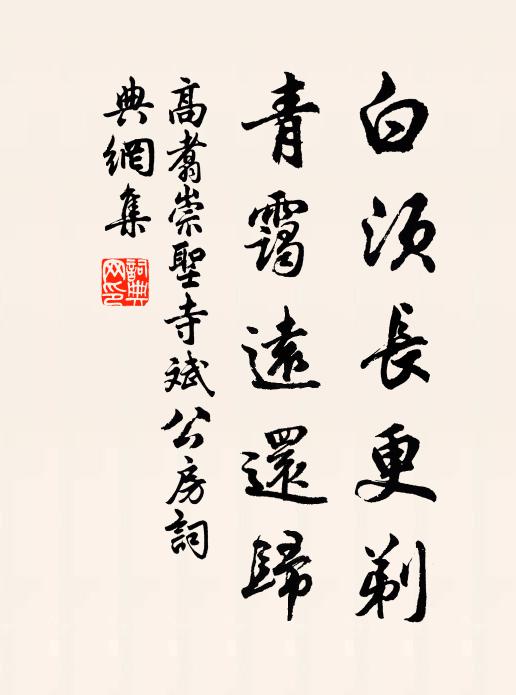 白須長更剃
青靄遠還歸
高翥崇聖寺斌公房詞
典網集
詞典
网印